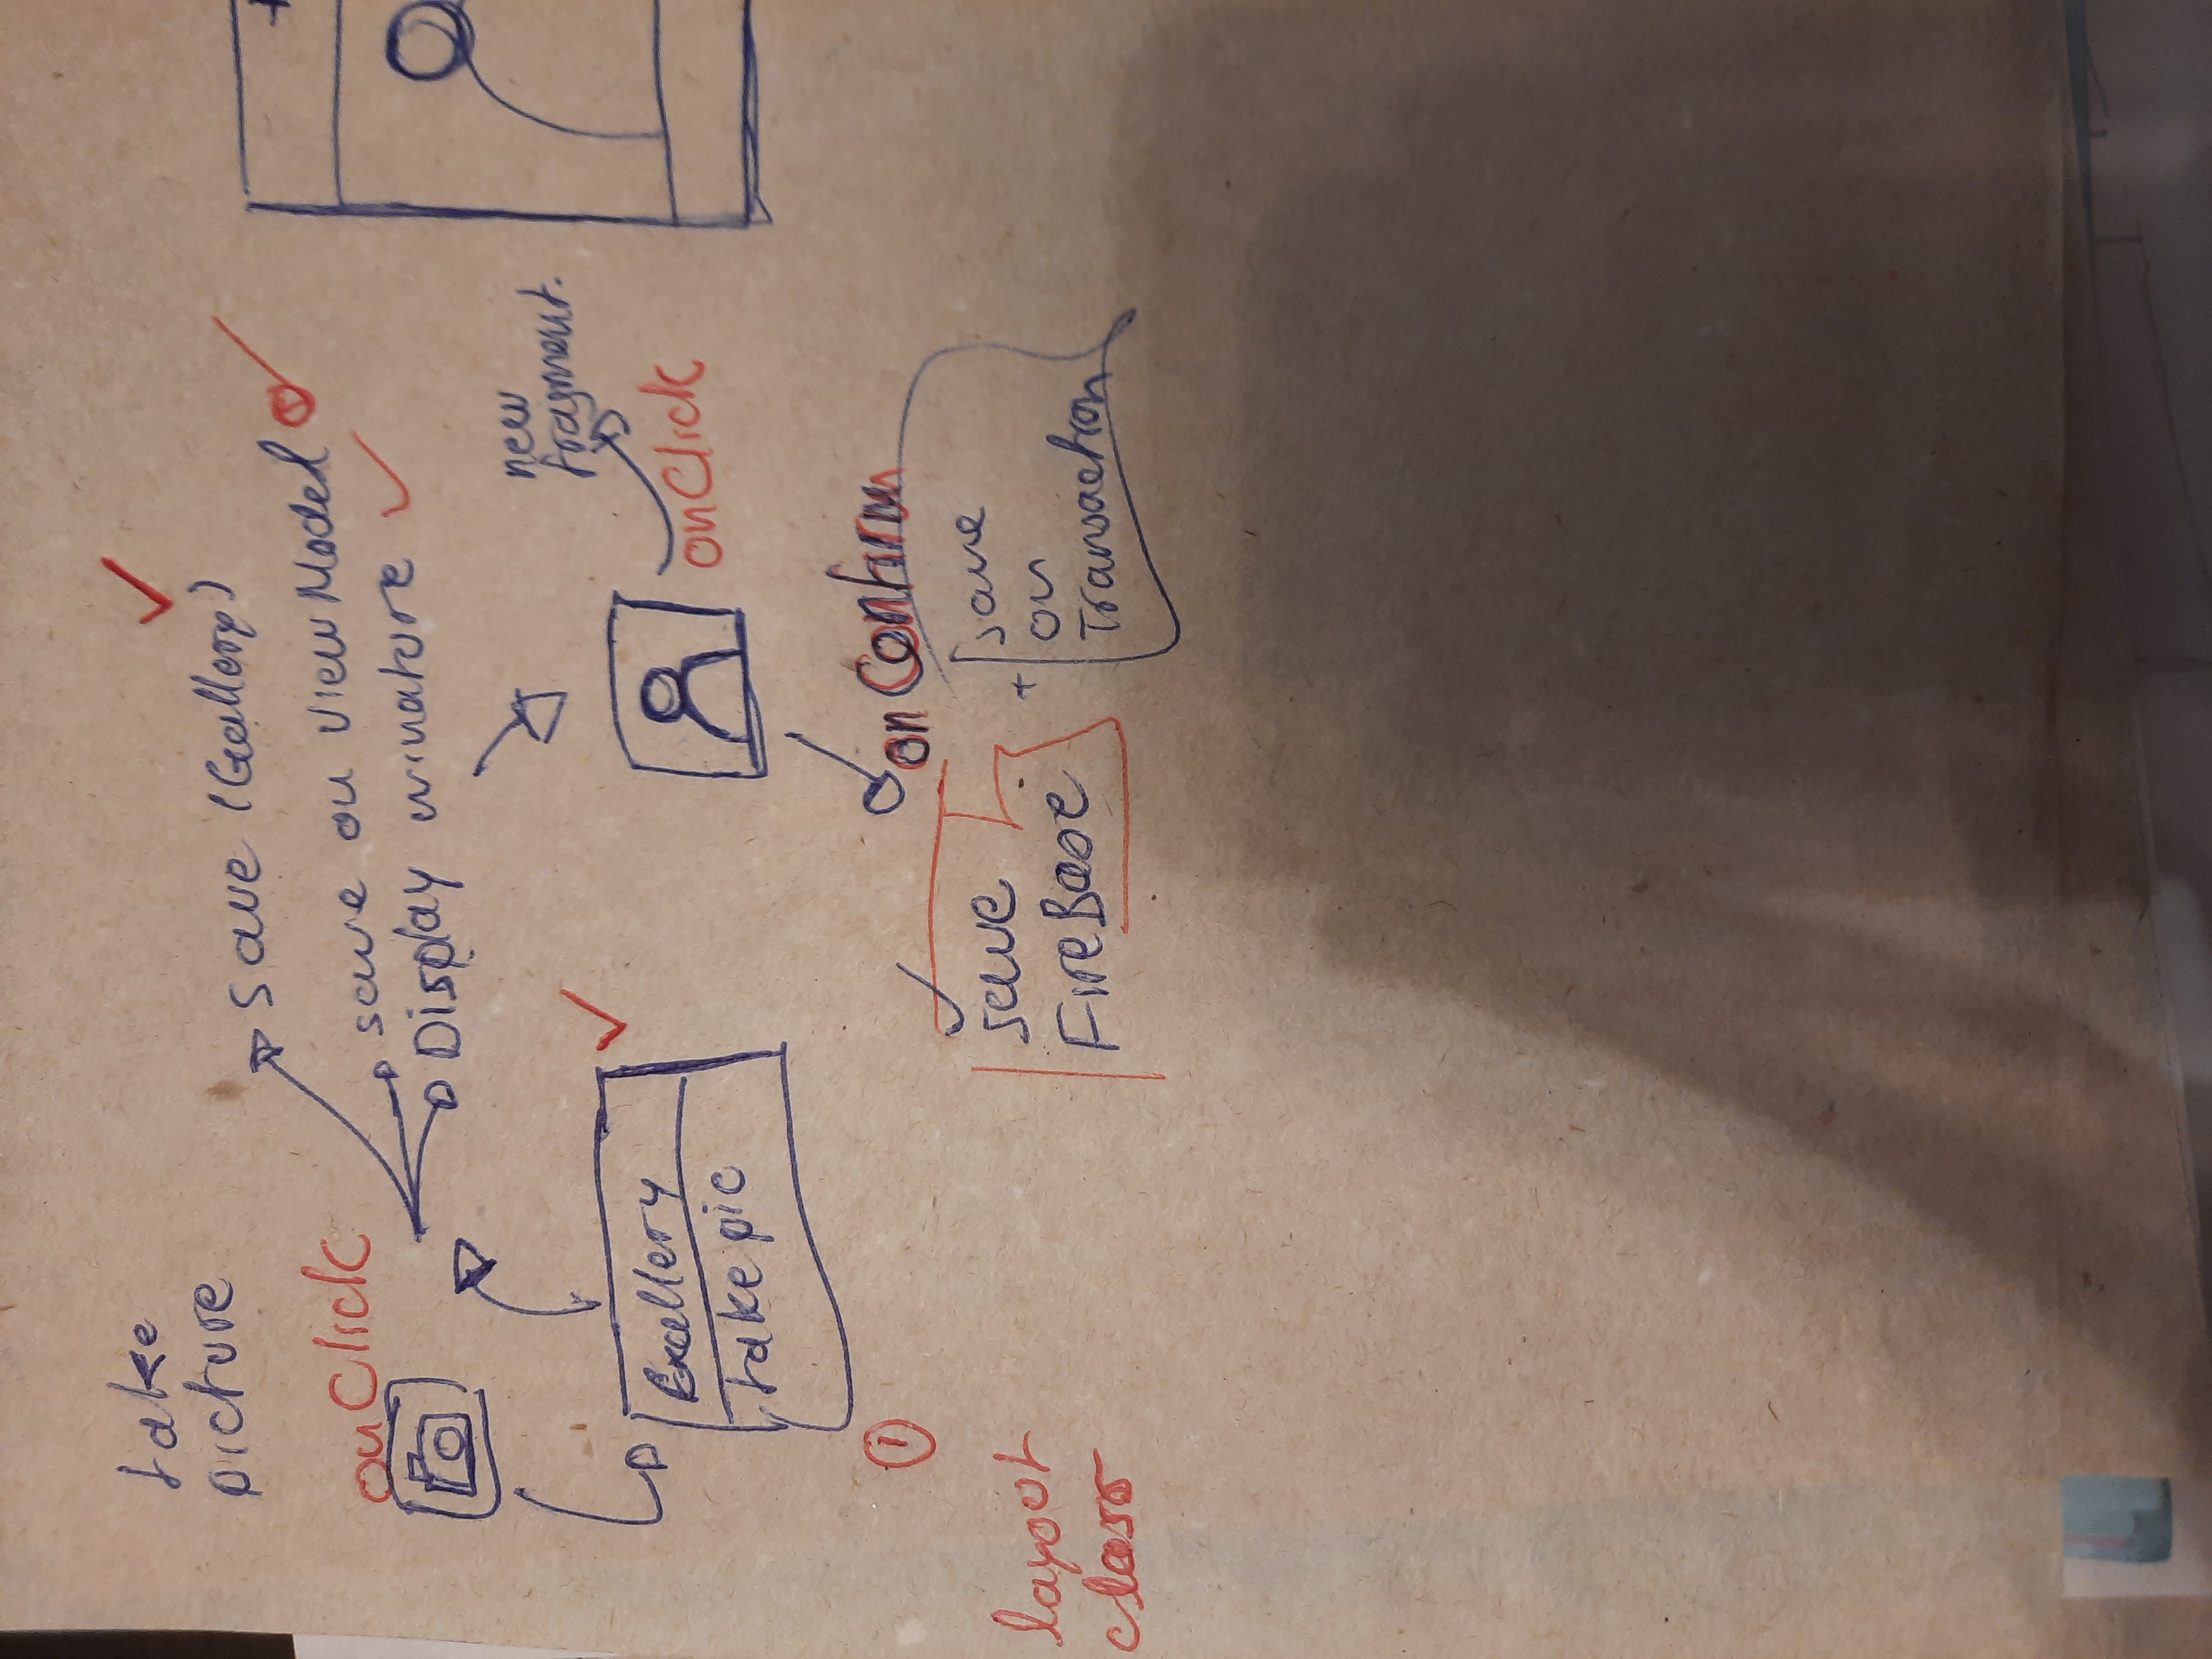 take
picture
onClick
Save (Gallery)
save on ViewModel
Display minature
Gallery
take pic
new
fragment.
onClick
1
onConfirm
layout
class
save
FireBase
+
save
on
Transaction